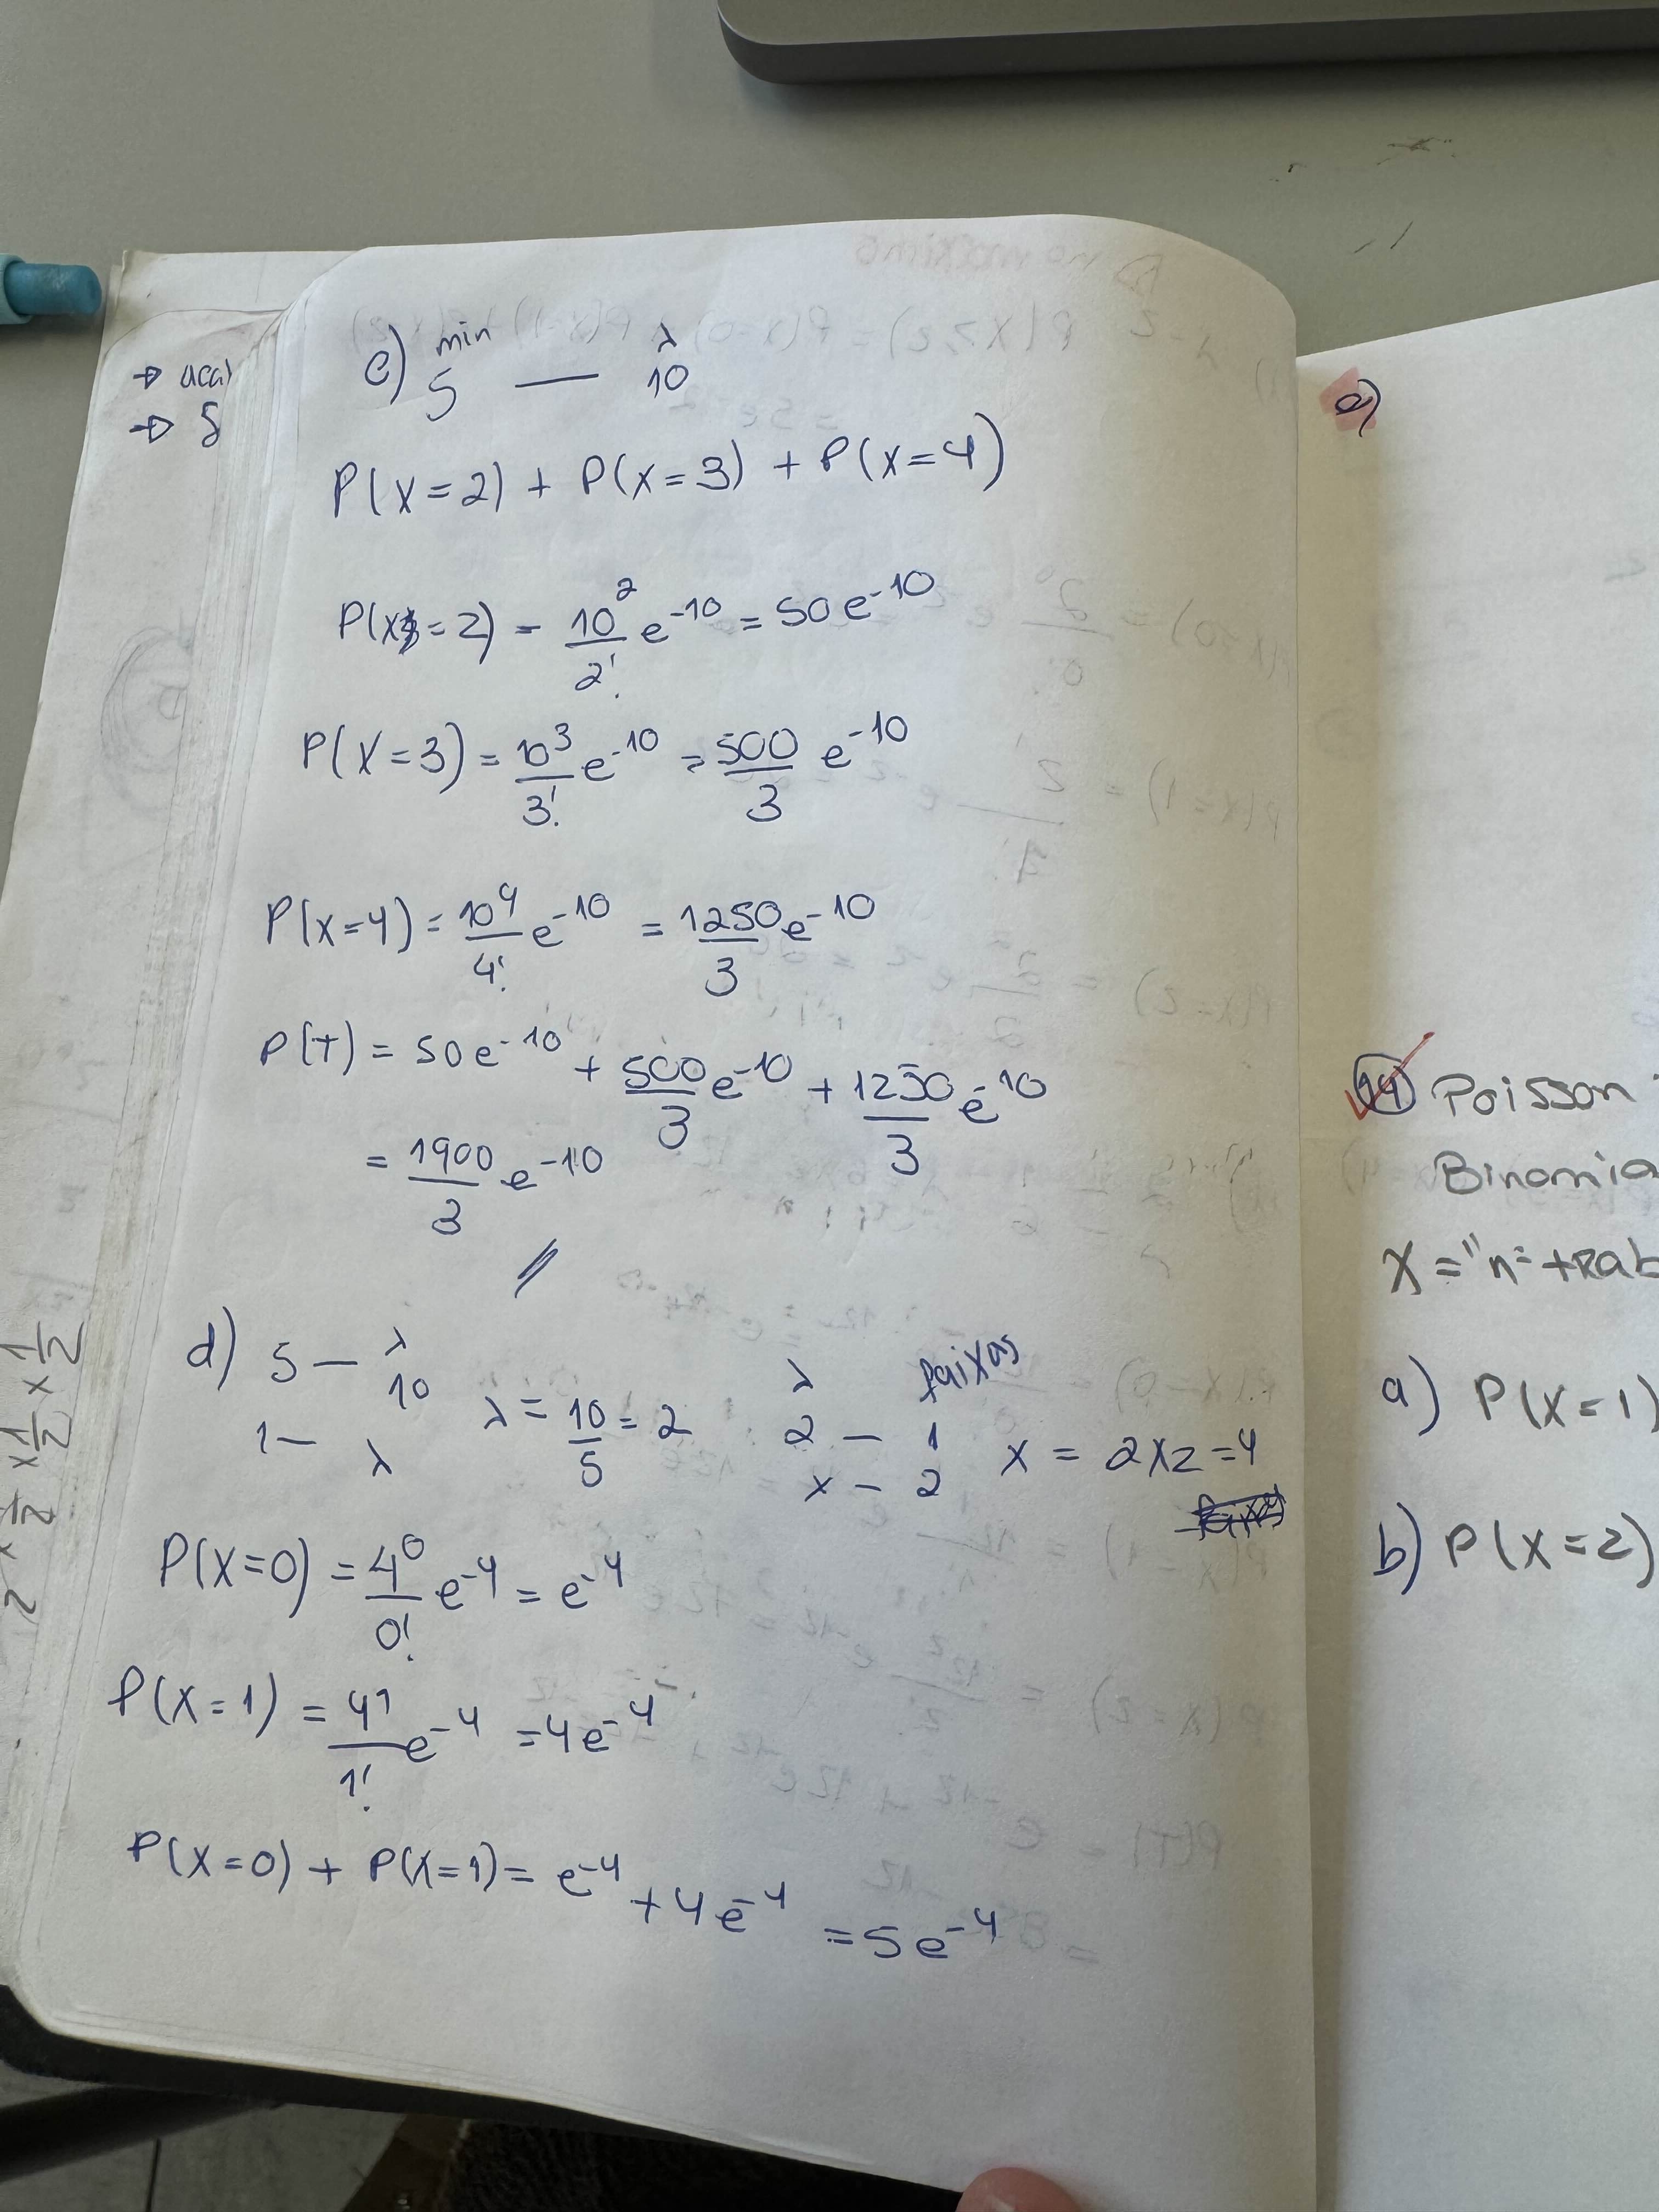 c) min λ
5 — 10
P(X=2) + P(X=3) + P(X=4)
P(X=2) = 10²/2! e⁻¹⁰ = 50e⁻¹⁰
P(X=3) = 10³/3! e⁻¹⁰ = 500/3 e⁻¹⁰
P(X=4) = 10⁴/4! e⁻¹⁰ = 1250/3 e⁻¹⁰
P(T) = 50e⁻¹⁰ + 500/3 e⁻¹⁰ + 1250/3 e⁻¹⁰
= 1900/3 e⁻¹⁰
d) 5 — λ 10
1 — λ
λ = 10/5 = 2
λ faixas
2 — 1
x — 2
x = 2x2 = 4
P(X=0) = 4⁰/0! e⁻⁴ = e⁻⁴
P(X=1) = 4¹/1! e⁻⁴ = 4e⁻⁴
P(X=0) + P(X=1) = e⁻⁴ + 4e⁻⁴ = 5e⁻⁴
x 1/2 x 1/2 x 1/2
a)
14 Poisson
Binomia
X = "nº trab
a) P(X=1)
b) P(X=2)